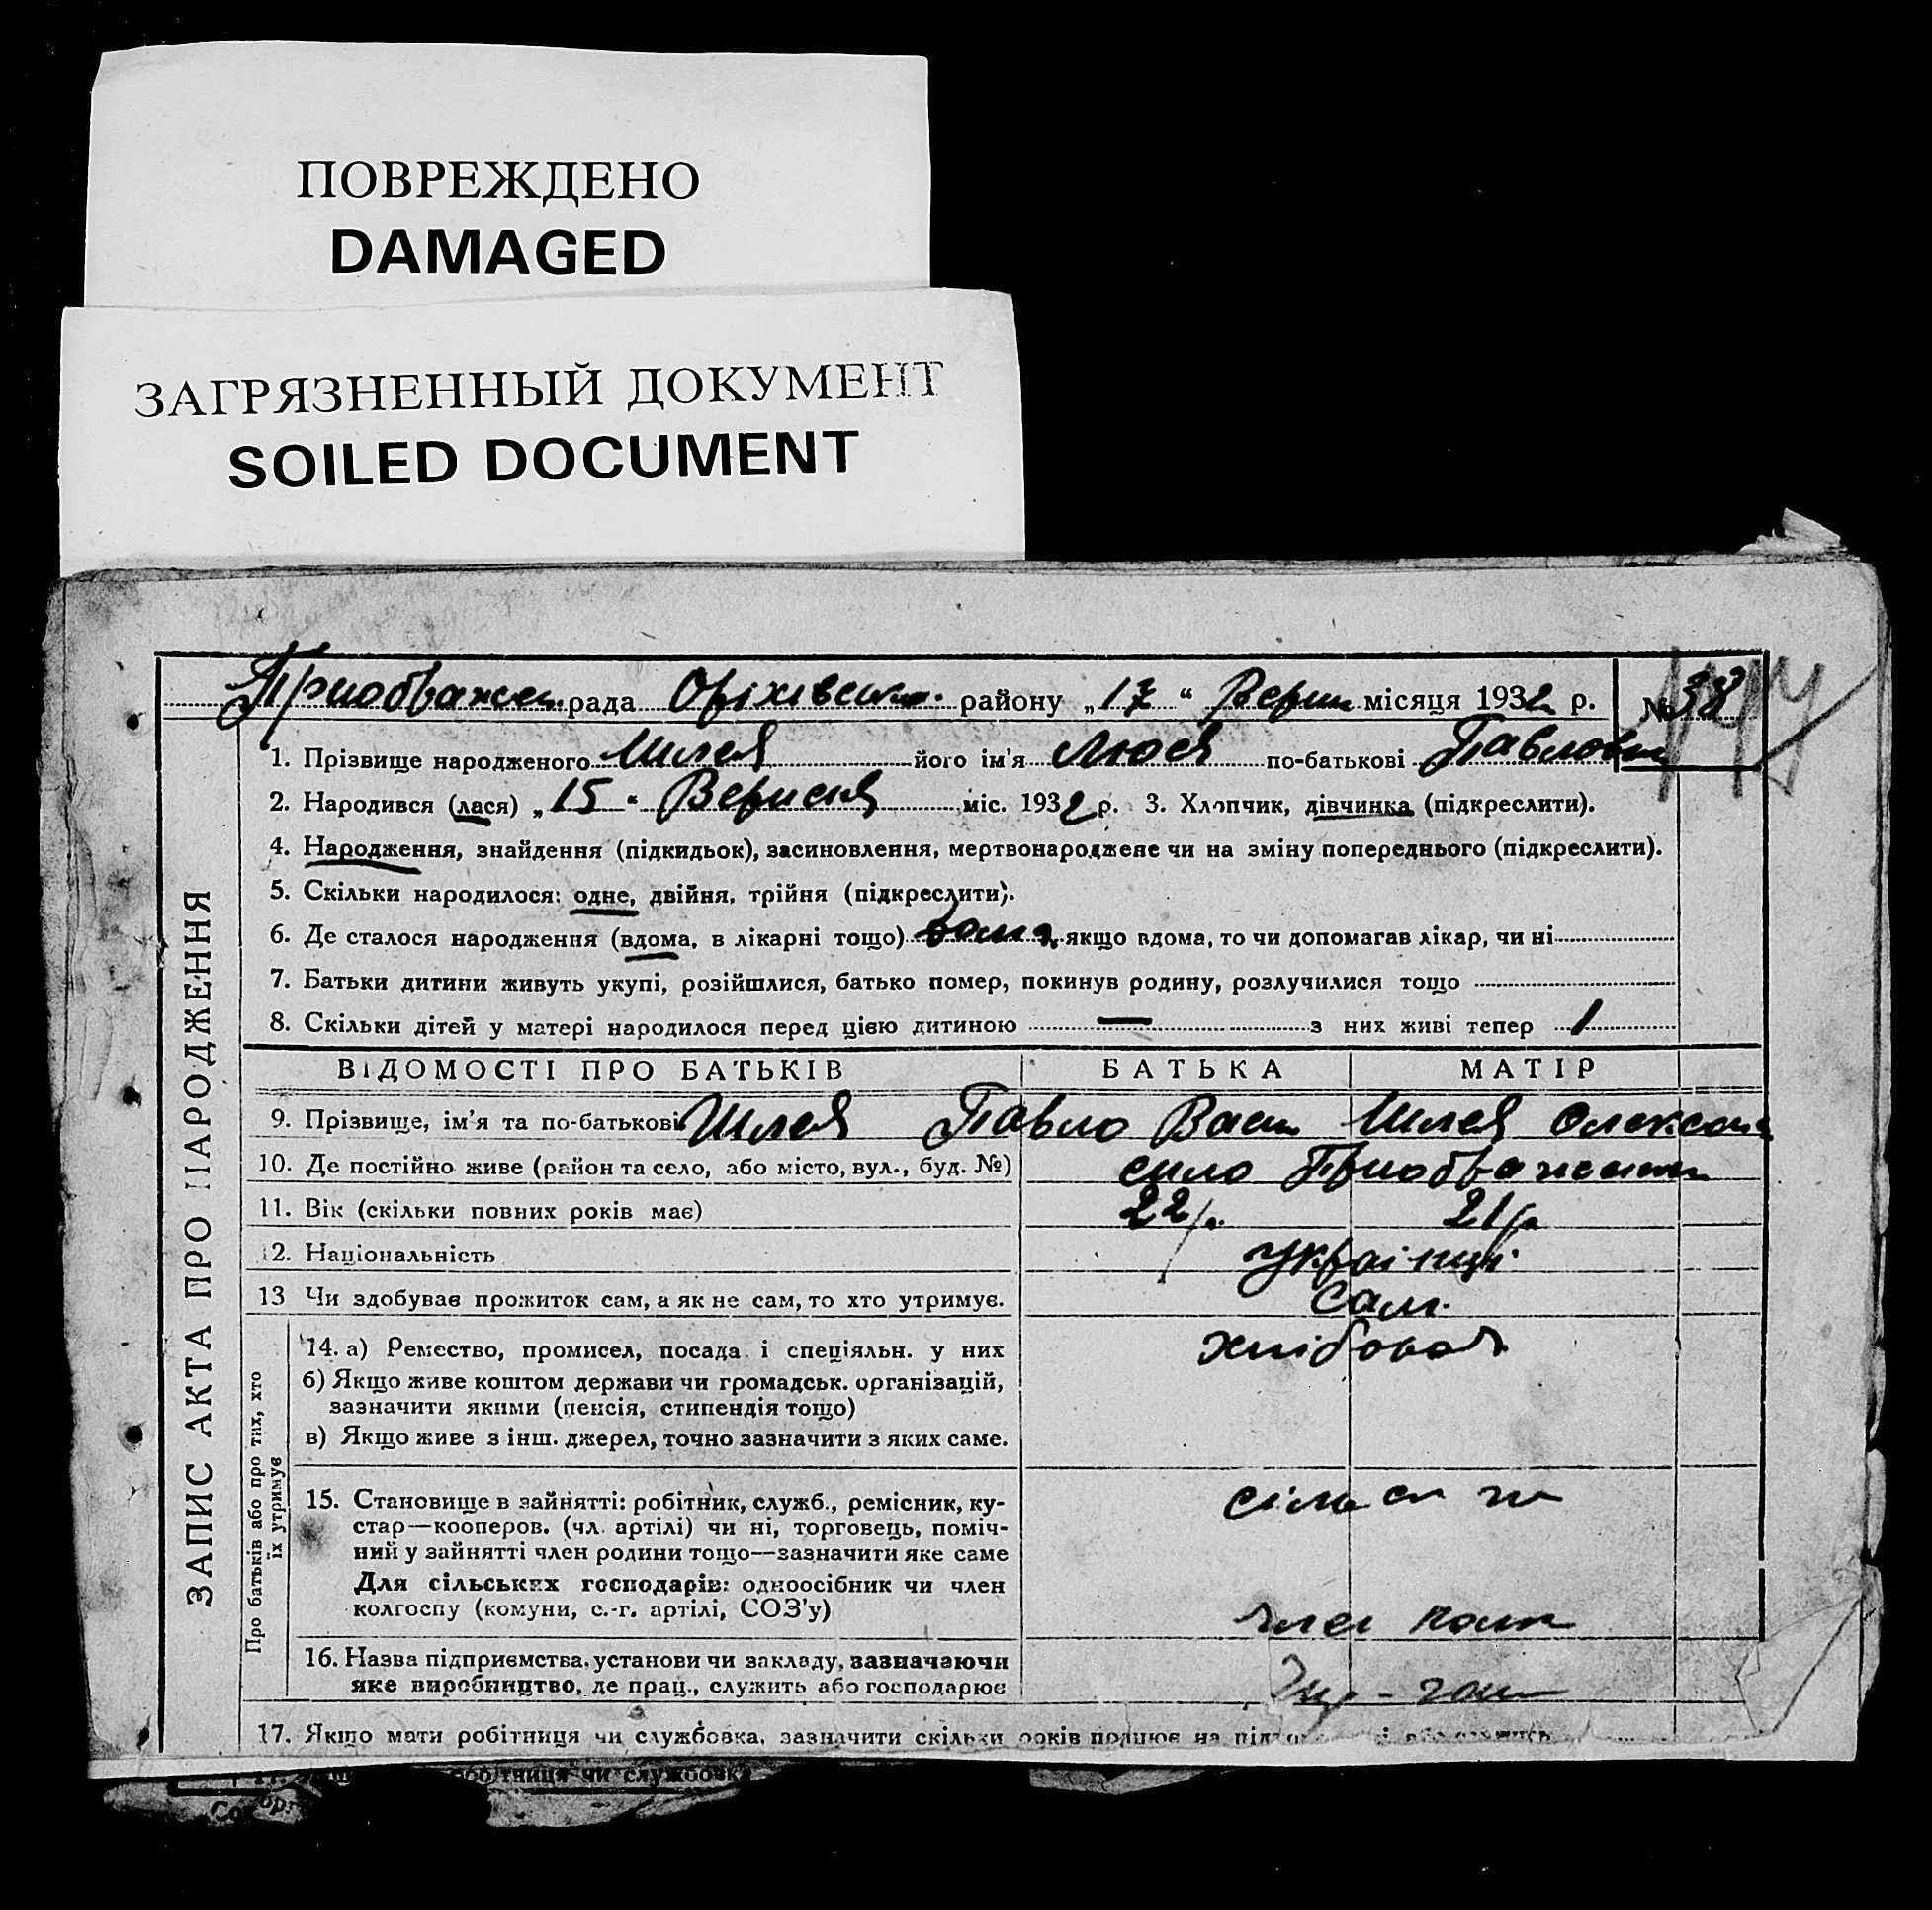 ПОВРЕЖДЕНО
DAMAGED
ЗАГРЯЗНЕННЫЙ ДОКУМЕНТ
SOILED DOCUMENT
рада Оріхівськ. району „17“ Верес місяця 1932 р. № 38
1. Прізвище народженого Шлея його ім'я Люся по-батькові Павловн
2. Народився (лася) „15“ Вересня міс. 1932 р. 3. Хлопчик, дівчинка (підкреслити).
4. Народження, знайдення (підкидьок), засиновлення, мертвонароджене чи на зміну попереднього (підкреслити).
5. Скільки народилося: одне, двійня, трійня (підкреслити).
6. Де сталося народження (вдома, в лікарні тощо) дома якщо вдома, то чи допомагав лікар, чи ні
7. Батьки дитини живуть укупі, розійшлися, батько помер, покинув родину, розлучилися тощо
8. Скільки дітей у матері народилося перед цією дитиною — з них живі тепер 1
ВІДОМОСТІ ПРО БАТЬКІВ БАТЬКА МАТІР
9. Прізвище, ім'я та по-батькові Шлея Павло Вас Шлея Олександ
10. Де постійно живе (район та село, або місто, вул., буд. №) село
11. Вік (скільки повних років має) 22 р. 21 р.
12. Національність українці
13 Чи здобуває прожиток сам, а як не сам, то хто утримує. Сам.
14. а) Ремество, промисел, посада і спеціяльн. у них хлібороб
б) Якщо живе коштом держави чи громадськ. організацій,
зазначити якими (пенсія, стипендія тощо)
в) Якщо живе з інш. джерел, точно зазначити з яких саме.
15. Становище в зайнятті: робітник, служб., ремісник, ку-
стар—кооперов. (чл. артілі) чи ні, торговець, поміч-
ний у зайнятті член родини тощо—зазначити яке саме
Для сільських господарів: одноосібник чи член
колгоспу (комуни, с.-г. артілі, СОЗ'у) член
16. Назва підприємства, установи чи закладу, зазначаючи
яке виробництво, де прац., служить або господарює
17. Якщо мати робітниця чи службовка, зазначити скільки років працює на
ЗАПИС АКТА ПРО НАРОДЖЕННЯ
Про батьків або про тих, хто
їх утримує
робітниця чи службовка